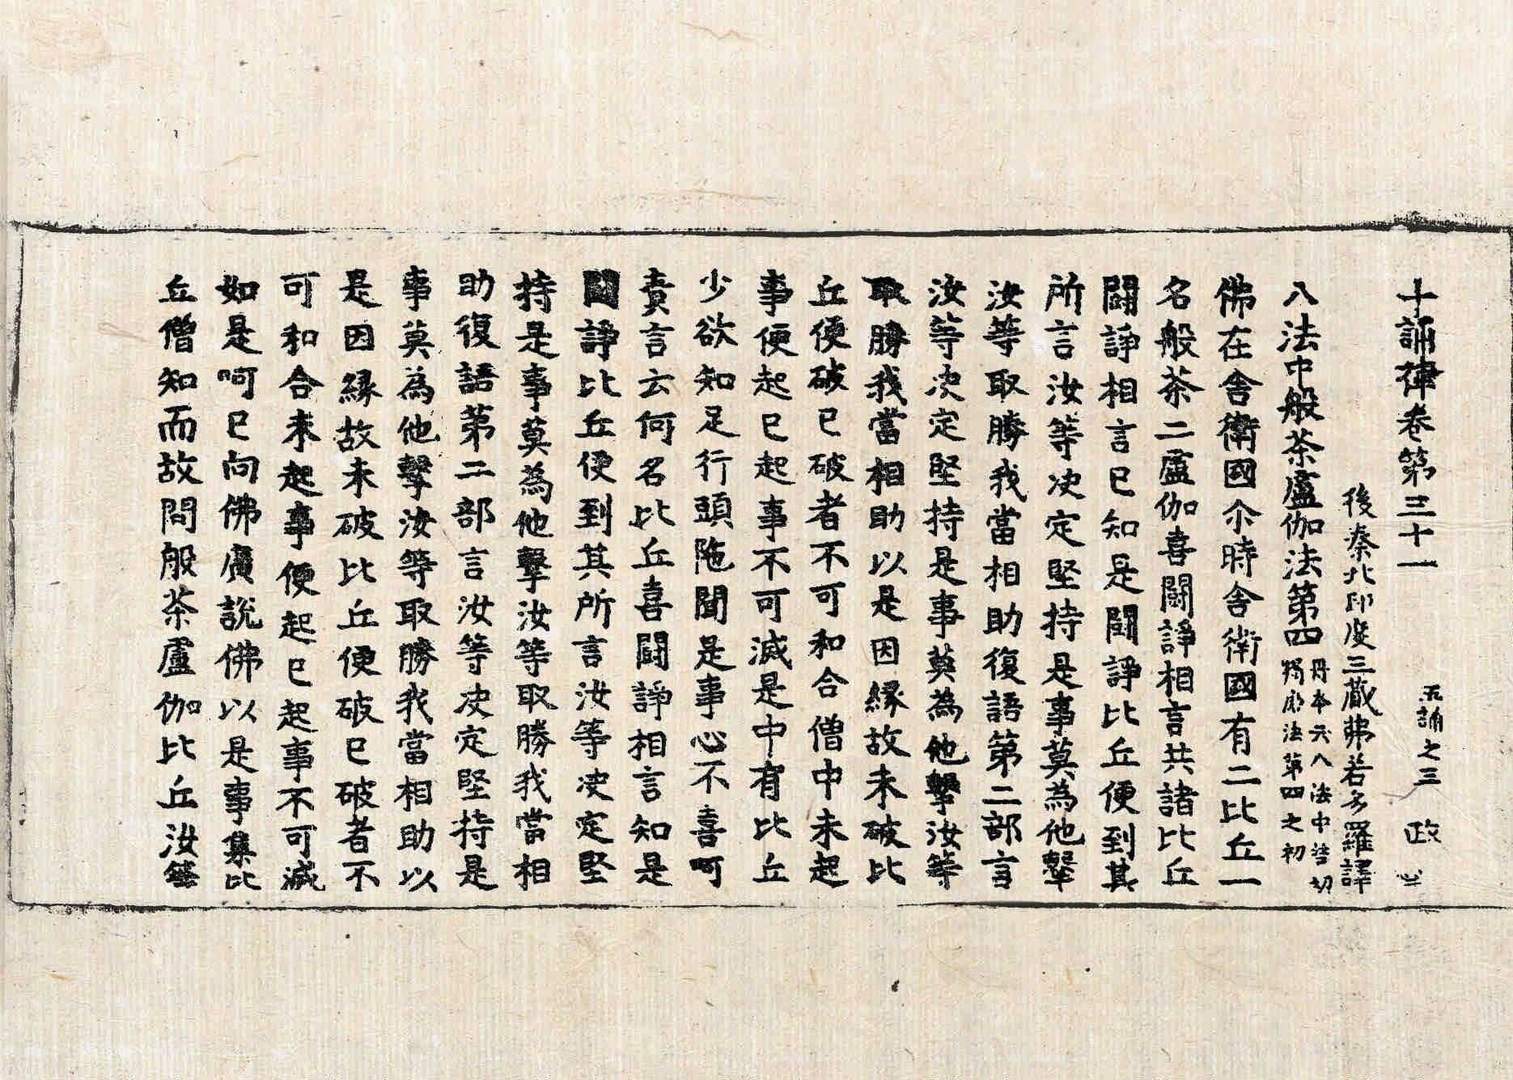 十誦律卷第三十一　五誦之三　政
後秦北印度三藏弗若多羅譯
八法中般茶盧伽法第四丹本云八法中苦切羯磨法第四之初
佛在舍衛國尒時舍衛國有二比丘一
名般茶二盧伽喜鬪諍相言共諸比丘
鬪諍相言已知是鬪諍比丘便到其
所言汝等決定堅持是事莫為他擊
汝等取勝我當相助復語第二部言
汝等决定堅持是事莫為他擊汝等
取勝我當相助以是因縁故未破比
丘便破已破者不可和合僧中未起
事便起已起事不可滅是中有比丘
少欲知足行頭陁聞是事心不喜呵
責言云何名比丘喜鬪諍相言知是
鬪諍比丘便到其所言汝等决定堅
持是事莫為他擊汝等取勝我當相
助復語第二部言汝等决定堅持是
事莫為他擊汝等取勝我當相助以
是因縁故未破比丘便破已破者不
可和合未起事便起已起事不可滅
如是呵已向佛廣說佛以是事集比
丘僧知而故問般茶盧伽比丘汝䓁